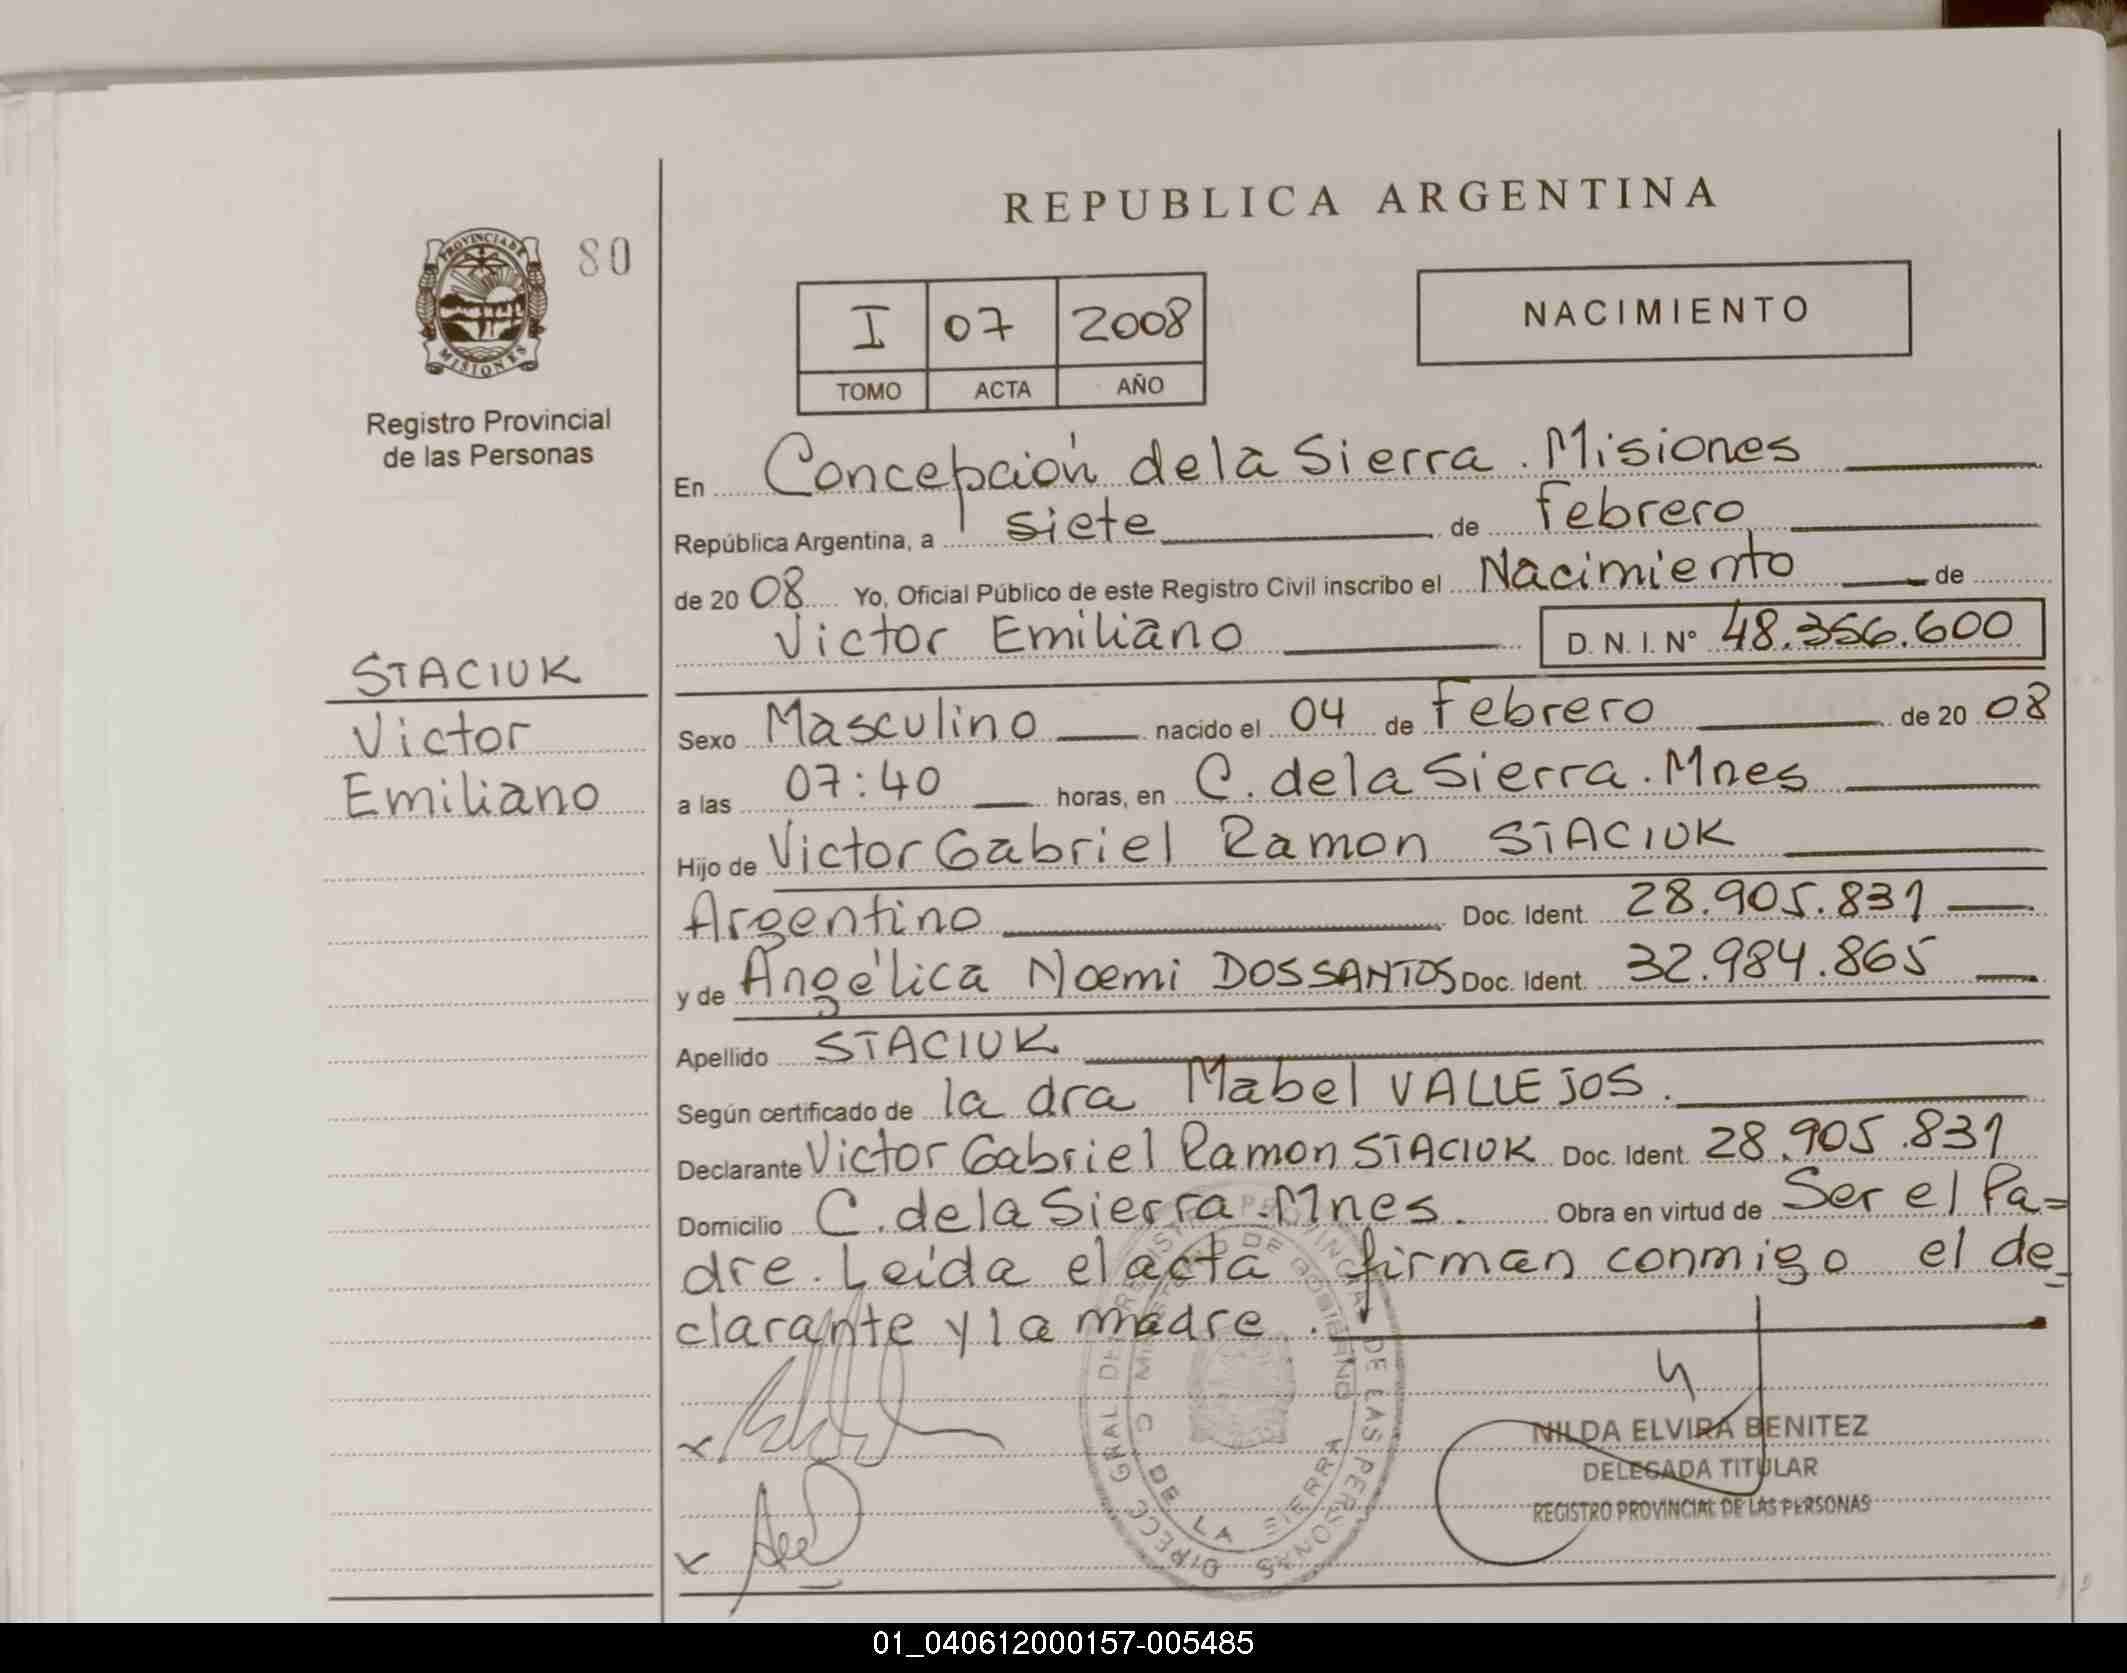 REPUBLICA ARGENTINA
PROVINCIA DE
MISIONES
80
Registro Provincial
de las Personas
I 07 2008
TOMO ACTA AÑO
NACIMIENTO
En Concepción de la Sierra. Misiones
República Argentina, a siete de febrero
de 20 08 Yo, Oficial Público de este Registro Civil inscribo el Nacimiento de
Victor Emiliano D. N. I. Nº 48.356.600
STACIUK
Victor
Emiliano
Sexo Masculino nacido el 04 de febrero de 20 08
a las 07:40 horas, en C. de la Sierra. Mnes
Hijo de Victor Gabriel Ramon STACIUK
Argentino Doc. Ident. 28.905.831
y de Angélica Noemi DOSSANTOS Doc. Ident. 32.984.865
Apellido STACIUK
Según certificado de la dra Mabel VALLEJOS.
Declarante Victor Gabriel Ramon STACIUK Doc. Ident. 28.905.831
Domicilio C. de la Sierra. Mnes. Obra en virtud de Ser el Pa=
dre. Leída el acta firman conmigo el de=
clarante y la madre.
DIRECC GRAL DEL REGISTRO PROVINCIAL DE LAS PERSONAS
MINISTERIO DE GOBIERNO
C DE LA SIERRA
NILDA ELVIRA BENITEZ
DELEGADA TITULAR
REGISTRO PROVINCIAL DE LAS PERSONAS
01_040612000157-005485